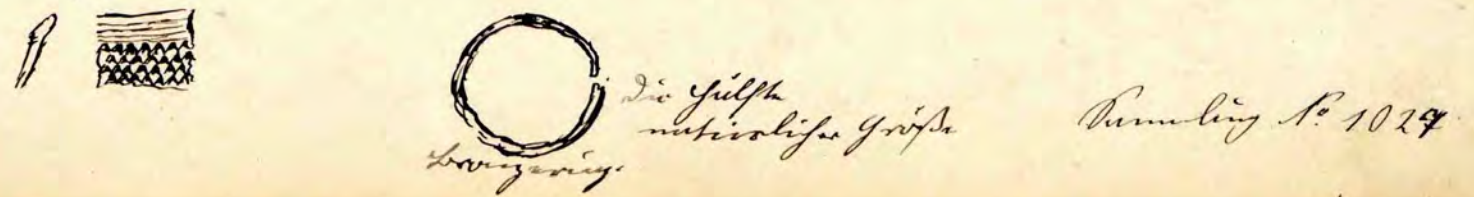 die Hälfte
natürlicher Größe
Bronzering.
Sammlung No 1027